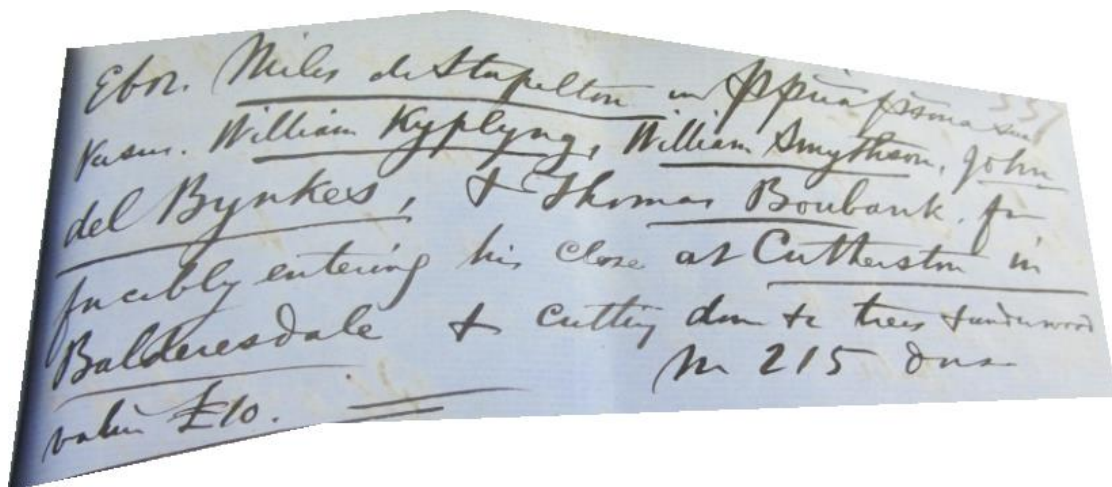 Ebor. Miles de Stapelton in
versus. William Kyplyng, William Smythson, John
del Bynkes, & Thomas Boubank, for
forcibly entering his close at Cutherston in
Balderesdale & cutting down the trees & underwood
value £10. m 215